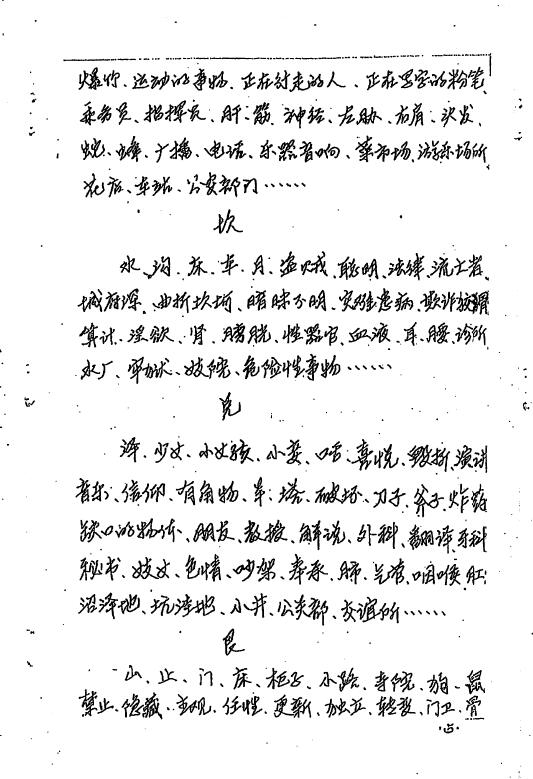 爆炸、运动的事物、正在行走的人、正在写字的粉笔、
乘务员、指挥员、肝、筋、神经、左胁、右肩、头发、
蛇、蜂、广播、电话、乐器音响、菜市场、游乐场所
花店、车站、公安部门……
坎
水、沟、床、车、月、盗贼、聪明、法律、流亡者、
城府深、曲折坎坷、暗昧不明、灾难患病、欺诈狡猾
算计、淫欲、肾、膀胱、性器官、血液、耳、腰、诊所
水厂、牢狱、妓院、危险性事物……
兑
泽、少女、小女孩、小妾、口舌、喜悦、毁折、演讲
音乐、信仰、有角物、羊、塔、破坏、刀子、斧子、炸弹
缺口的物体、朋友、教授、解说、外科、翻译、牙科
秘书、妓女、色情、吵架、奉承、肺、气管、咽喉、肛
沼泽地、坑洼地、小井、公关部、交谊所……
艮
山、止、门、床、柜子、小路、寺院、狗、鼠
禁止、隐藏、主观、任性、更新、独立、转变、门卫、骨
·5·